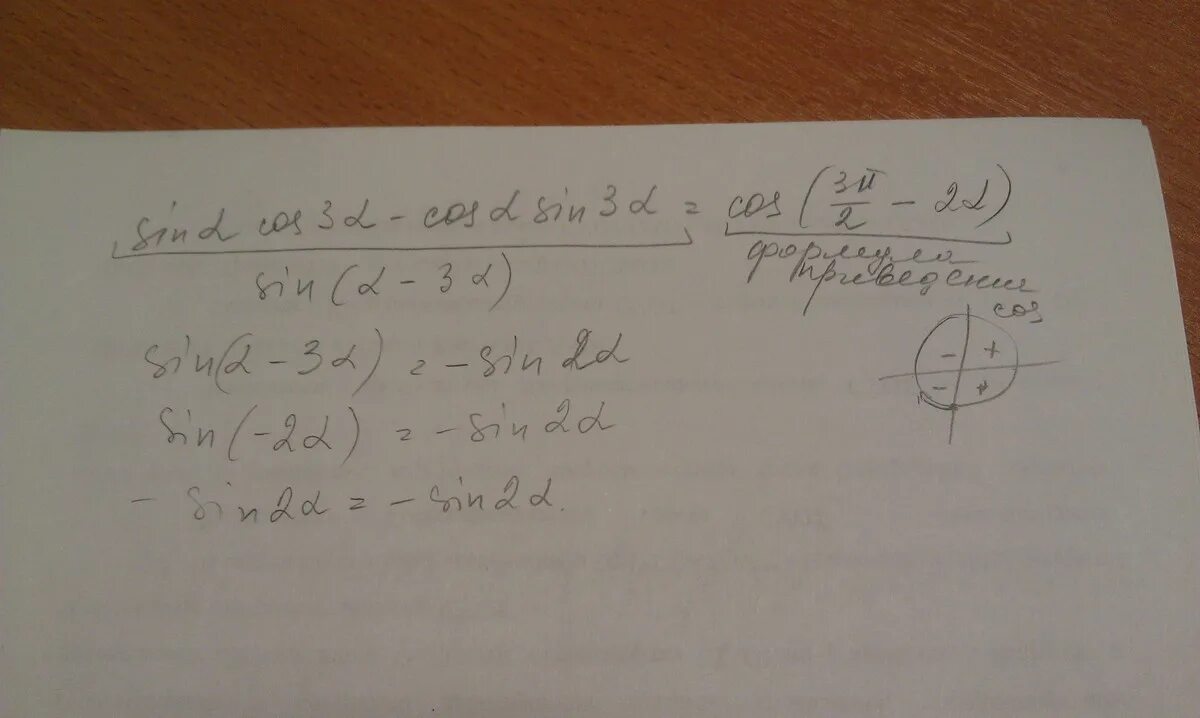 sinα cos3α - cosα sin3α = cos(3π/2 - 2α)
sin(α - 3α)
формула
приведения
cos
- +
- +
sin(α - 3α) = -sin2α
sin(-2α) = -sin2α
- sin2α = -sin2α.